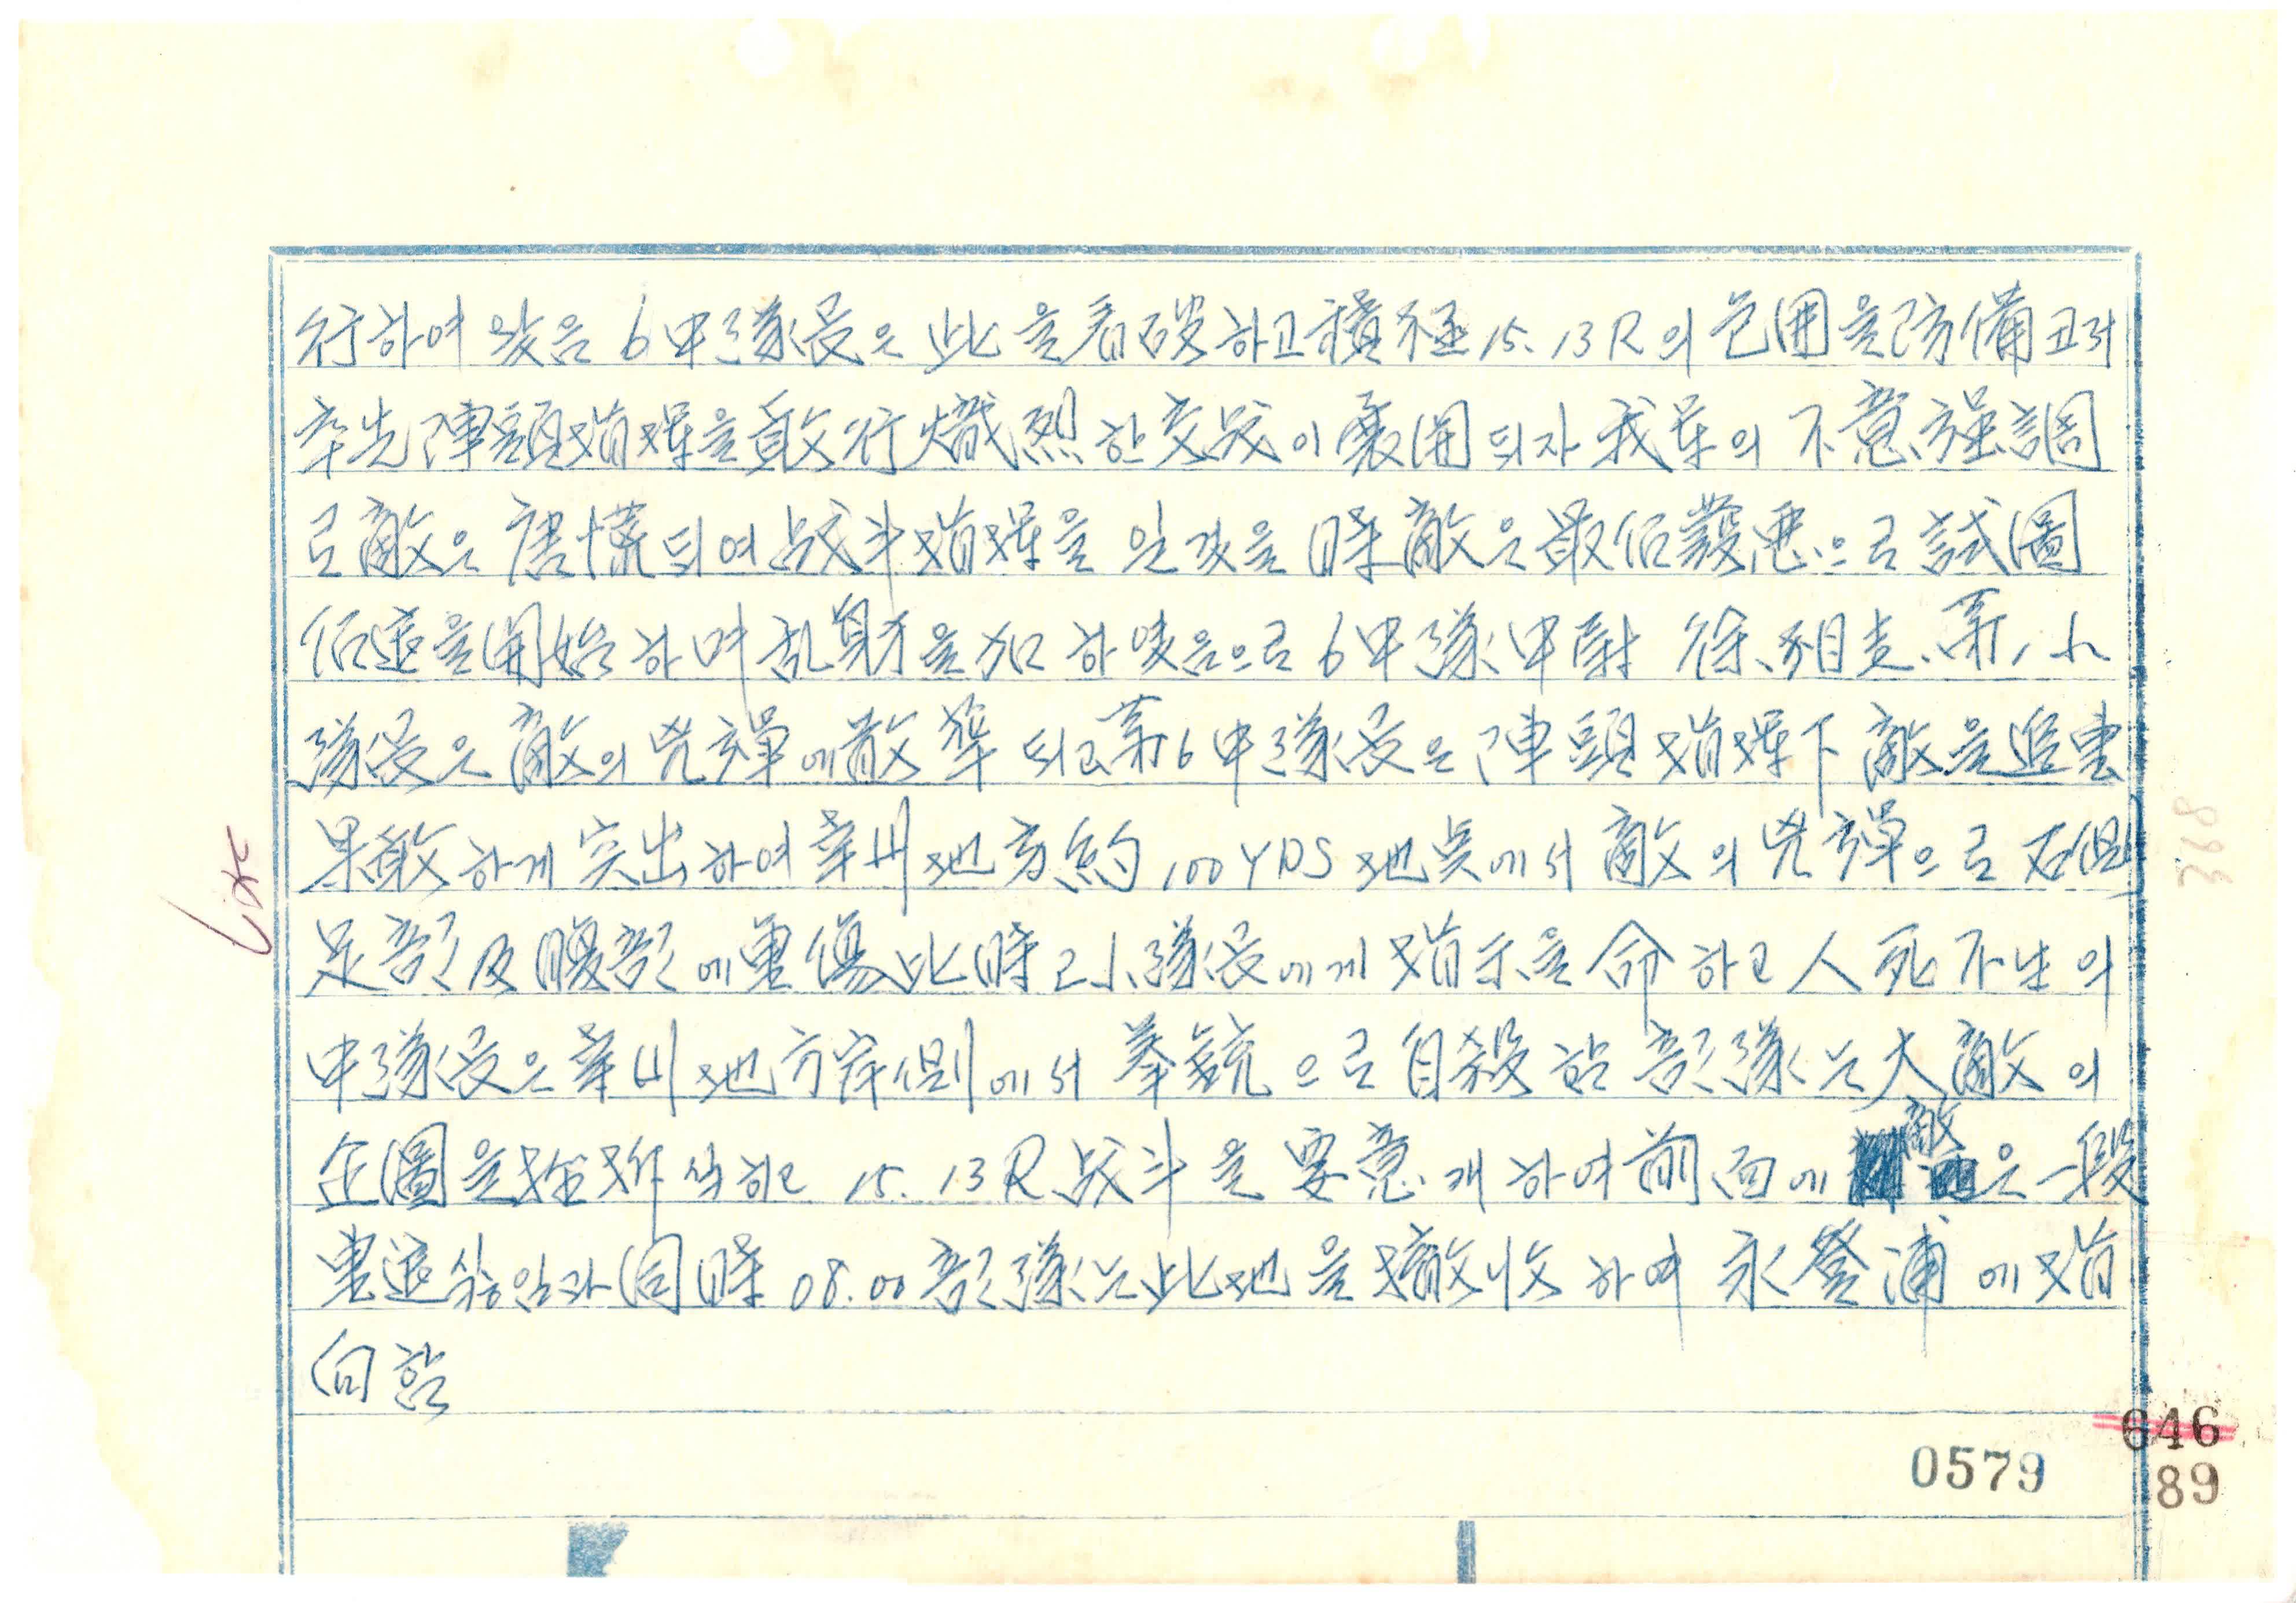 行하여 왔음 6中隊長은 此을 看破하고 積極 15. 13R의 包囲을 防備코저
率先陣頭指揮을 敢行 熾烈한 交战이 展開되자 我軍의 不意 强調
로 敵은 唐慌되여 战斗指揮을 잃었을 時 敵은 最后發悪으로 試圖
后退을 開始하며 乱射을 加하였음으로 6中隊 中尉 徐相 第1小
隊長은 敵의 兇弾에 散華 되고 第6中隊長은 陣頭指揮下 敵을 追擊
果敢하게 突出하여 幸州地方 約 100 YDS 地点에서 敵의 兇弾으로 右側
足部 及 腹部에 重傷 此時 2小隊長에게 指示을 命하고 人死不生의
中隊長은 幸州地方岸側에서 拳銃으로 自殺함 部隊는 大敵의
企圖을 挫折식히고 15. 13R 战斗을 容意케하여 前面에 敵은 一段
擊退 하였음과 同時 08.00 部隊는 此地을 撤收하여 永登浦에 指
向함
0579
646
89
368